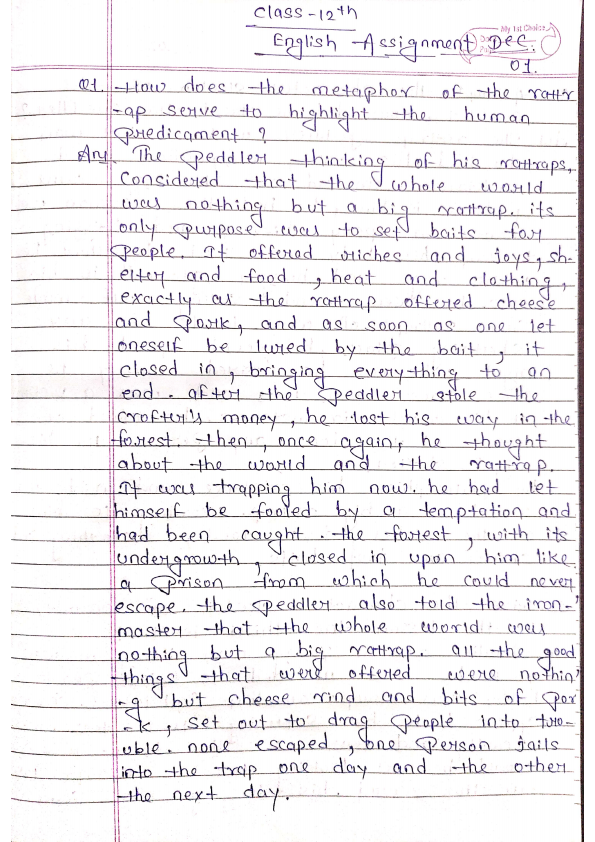 Class-12th
My 1st Choice
English Assignment Dec.
01.
Q1. How does the metaphor of the rattr
-ap serve to highlight the human
predicament ?
Ans The peddler thinking of his rattraps,
considered that the whole world
was nothing but a big rattrap. its
only purpose was to set baits for
people. It offered riches and joys, sh-
elter and food , heat and clothing,
exactly as the rattrap offered cheese
and pork, and as soon as one let
oneself be lured by the bait , it
closed in, bringing everything to an
end. after the peddler stole the
crofter's money, he lost his way in the
forest. then , once again, he thought
about the world and the rattrap.
It was trapping him now. he had let
himself be fooled by a temptation and
had been caught. the forest, with its
undergrowth, closed in upon him like
a prison from which he could never
escape. the peddler also told the iron-
master that the whole world was
nothing but a big rattrap. all the good
things that were offered were nothin
-g but cheese rind and bits of por
-k, set out to drag people into tro-
uble. none escaped , one person fails
into the trap one day and the other
the next day.